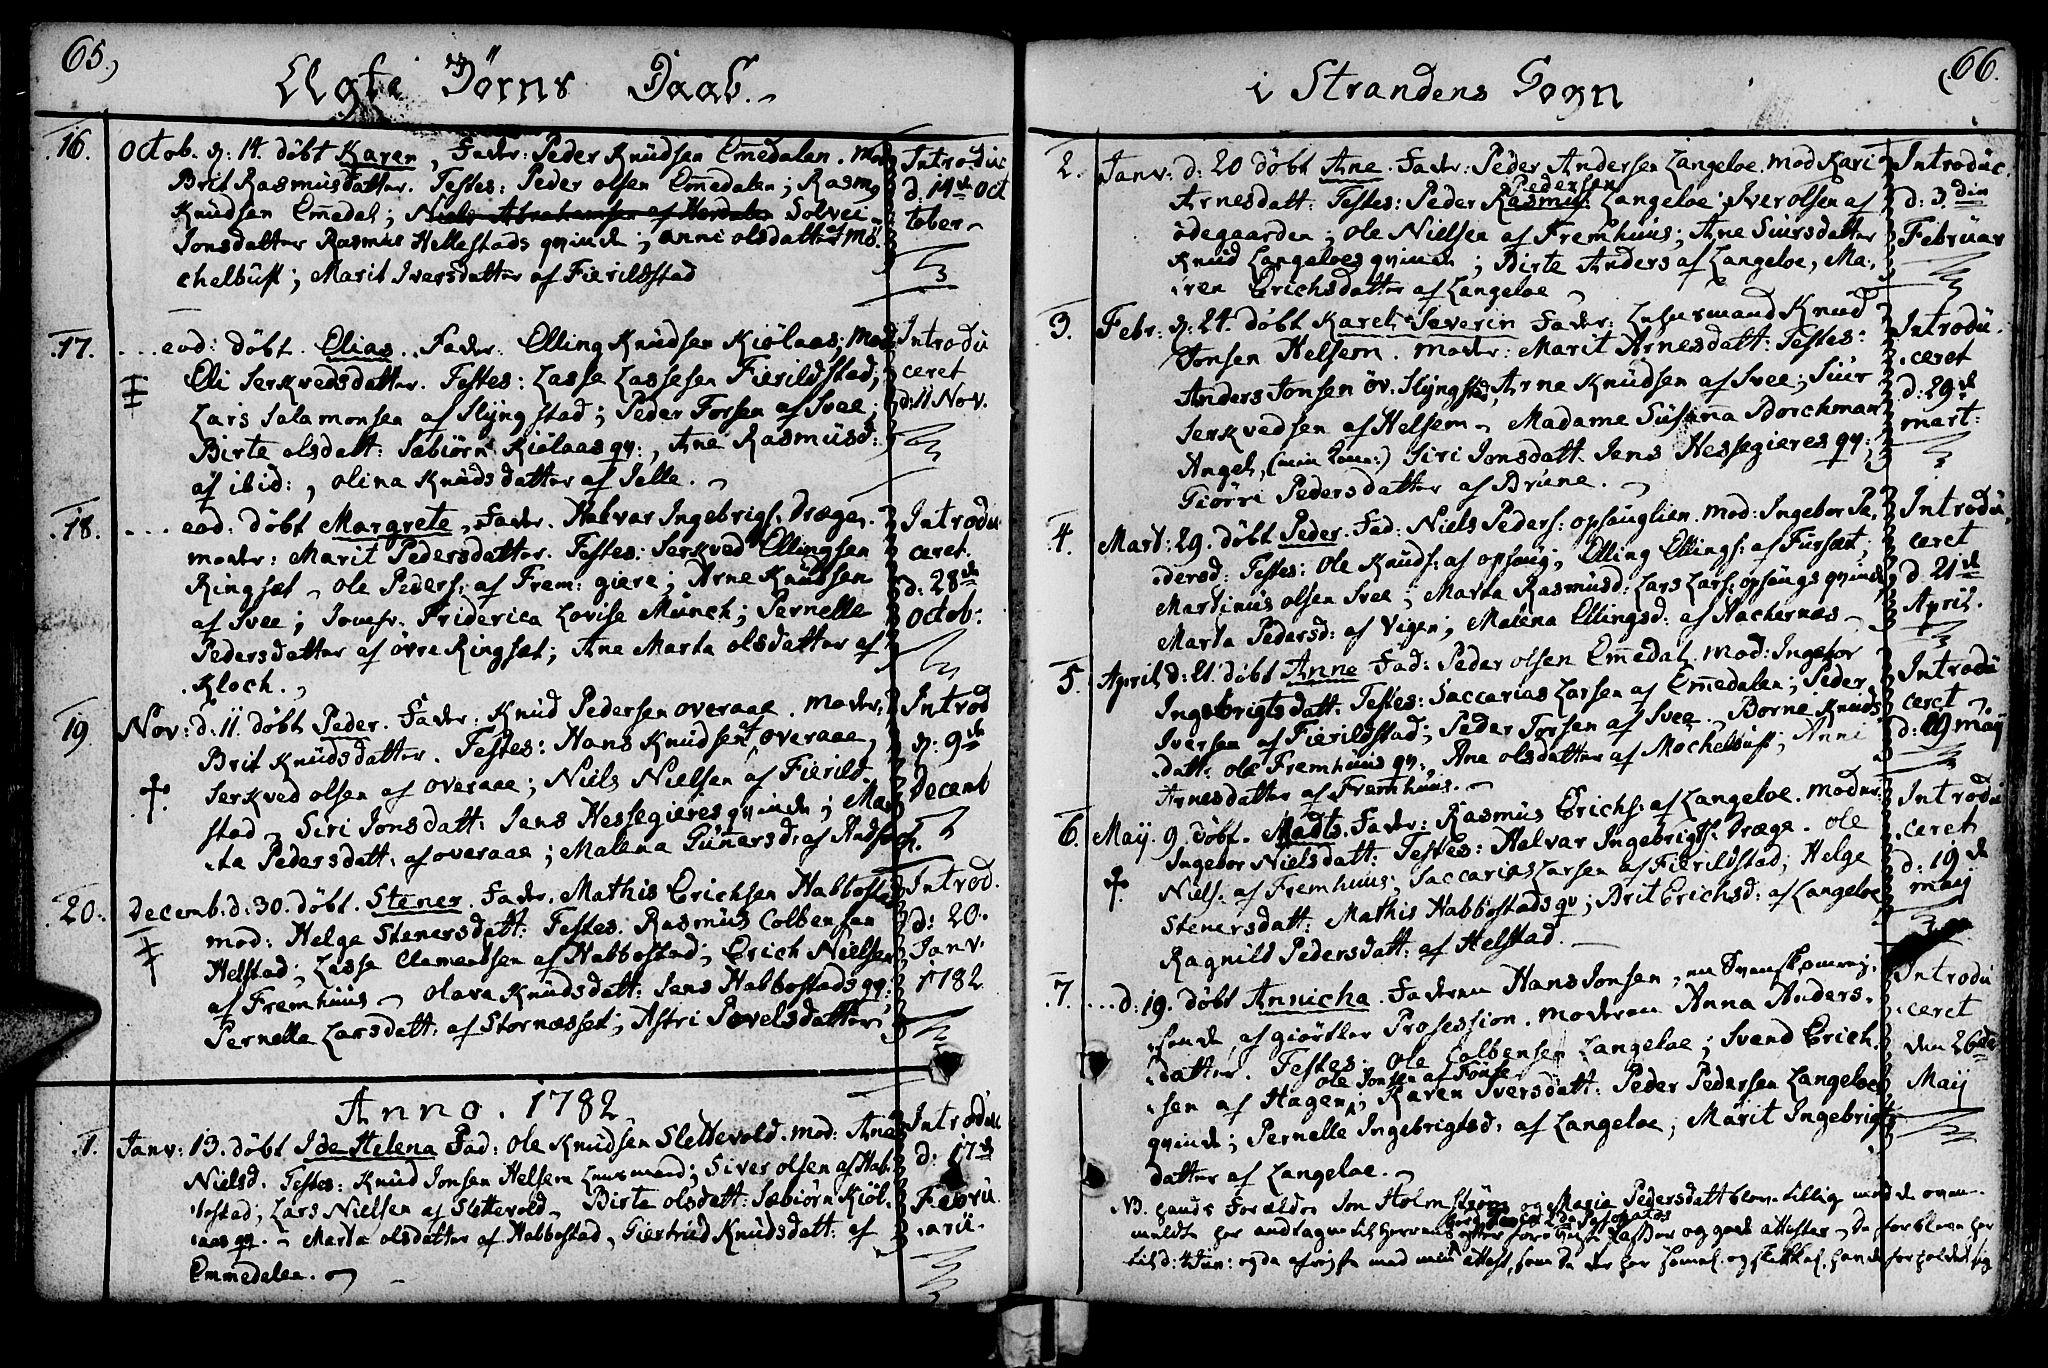 65.)
Ægte Børns Daab.
16. Octob. d: 14. döbt Karen, Fader: Peder Knudsen Emedalen. Mod
Brit Rasmusdatter. Testes: Peder olsen Emedalen; Rasm9
Knudsen Emedal; Niels Abrahamsen af Hordalen Solvei
Jonsdatter Rasmus Hellestads qvinde; anni olsdatter af Mø-
chelbust; Marit Iversdatter af Fierildstad
Introduc
d: 14de Oct
tober
17. ... eod: döbt. Elias. Fader: Elling Knudsen Kiölaas; Mod
Eli Serkvedsdatter. Testes: Lasse Lassesen Fierildstad;
Lars Salamonsen af Slyngstad; Peder Torsen af Svee;
Birte olsdatt: Sæbiørn Kiölaas qv:, Ane Rasmusd:
af ibid:, olina Knudsdatter af Velle.
Introdu
ceret
d: 11 Nov.
18. .... eod. döbt Margrete, Fader. Halvar Ingebrigs. Dræge.
moder: Marit Pedersdatter. Testes: Serkved Ellingsen
Ringset, ole Peders: af Frem: giere; Arne Knudsen
af Svee; Jomfr. Friderica Lovise Münch; Pernelle
Pedersdatter af övre Ringset; Ane Marta olsdatter af
Kloch.
Introdu
ceret.
d: 28de
octob:
19. Nov: d: 11. döbt Peder. Fader: Knud Pedersen overaae. Moder:
Brit Knudsdatter. Testes: Hans Knudsen af overaae,
Serkved olsen af overaae; Niels Nielsen af Fierild-
stad, Siri Jonsdatt: Jens Hessegieres qvinde; Mar
ta Pedersdatt: af overaae; Malena Gunersd: af
Introd
d: 9de
Decemb
20. Decemb. d: 30. döbt. Stener. Fader. Mathis Erichsen Habbostad
mod: Helge Stenersdatt: Testes. Rasmus Colbensen
Helstad; Lasse Clementsen af Habbostad; Erich Nielsen
af Fremhuus, olava Knudsdatt: Jens Habbostads qv:;
Pernelle Larsdatt: af Stornesset; Astri Povelsdatter
Introd.
d: 20.
Janv.
1782
Anno. 1782
1. Janv: 13. döbt Ide Helena Fad: ole Knudsen Slettevold. mod: Ane
Nielsd. Testes: Knud Jonsen Helsem Lensmand; Siver olsen af Hab-
bostad, Lars Nielsen af Slettevold, Birte olsdatt: Sæbiörn Kiöl-
aas qv. Marta olsdatter af Habbostad, Giertrud Knudsdatt: af
Emmedalen.
Introduc
d: 17de
Febru
arii.
(66.
i Strandens Sogn
2. Janv: d: 20 döbt Ane. Fader: Peder Andersen Langeloe. mod Kari
Arnesdatt: Testes: Peder Rasmus. Pedersen Langeloe; Iver olsen af
ödegaarden; ole Nielsen af Fremhuus; Ane Siursdatter
Knud Langeloes qvinde; Birte Anders af Langeloe, Ma-
ren Erichsdatter af Langeloe
Introduc.
d: 3. die
Februar
3. Febr. d: 24. döbt Karen Severin Fader: Lensmand Knud
Jonsen Helsem. moder: Marit Arnesdatt: Testes:
Anders Jonsen öv. Slyngstad, Arne Knudsen af Svee; Siur
Serkvedsen af Helsem, Madame Susanna Borchman
Angel, (min Kone:) Siri Jonsdatt. Jens Hessegieres qv;
Giörri Pedersdatter af Brune.
Introdu.
ceret
d: 29de
mart:
4. Mart: 29. döbt Peder. Fad: Niels Peders: opsauglien. mod: Ingebor Pe-
dersd: Testes: ole Knuds: af opsaug; Elling Ellings: af Furset,
Martinus olsen Svee; Marta Rasmusd: Lars Lars: opsaugs qvinde,
Marta Pedersd: af Vigen; Malena Ellingsd: af Hachernæs
Introdu
ceret
d. 21de
April.
5. April d: 21. döbt Anne Fad: Peder olsen Emedal. Mod: Ingebor
Ingebrigtsdatt: Testes: Saccarias Larsen af Emedalen; Peder
Iversen af Fierildstad; Peder Torsen af Svee. Borne Knuds
datt: ole Fremhuus qv., Ane olsdatter af Mochelbust; Anni
Arnesdatter af Fremhuus.
Introdu
ceret
d: 29 May
6. May. 9. döbt. Madts. Fader: Rasmus Erichs: af Langeloe. Moder
Ingebor Nielsdatt: Testes: Halvar Ingebrigts. Dræge. ole
Niels. af Fremhuus; Saccarias Larsen af Fierildstad; Helge
Stenersdatt: Mathis Habbostads qv; Brit Erichsd: af Langeloe
Ragnild Pedersdatt: af Helstad.
Introdu
ceret
d: 19de
may
7. ... d: 19. döbt Annicha. Faderen Hans Jonsen, en Svensk omrej-
sende, af giörtler Profession. Moderen Anna Anders-
datter. Testes: Ole Colbensen Langeloe; Svend Erich-
sen af Hagen; ole Jonsen af Fonse; Karen Iversdatt: Peder Pedersen Langeloe
qvinde; Pernelle Ingebrigtsd: af Langeloe; Marit Ingebrigts
datter af Langeloe.
Introdu
ceret
den 26de
May
NB. hands Forældre Jon Holmström og Maria Pedersdatt blev tillig med de oven-
meldte her andtagne til efter forevist Passer og gode attester, da forbleve her
til d: 4 Jun: og da afrejste med min attest, som de der har